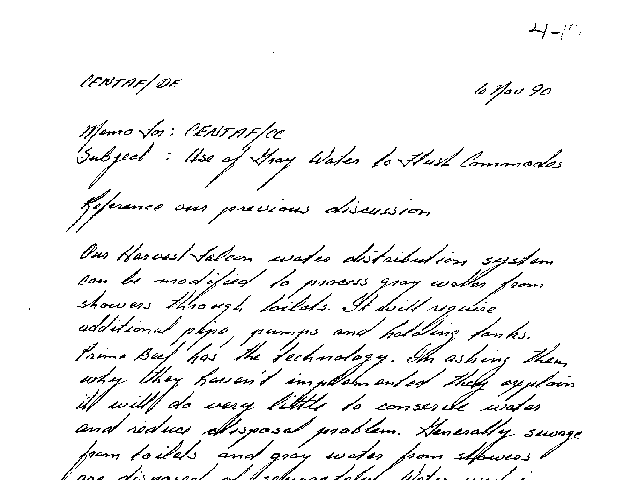 CENTAF/DE
6 Nov 90
Memo for: CENTAF/CC
Subject : Use of Gray Water to Flush Commodes
Reference our previous discussion
Our Harvest Falcon water distribution system
can be modified to process gray water from
showers through toilets. It will require
additional pipe, pumps and holding tanks.
Prime Beef has the technology. I'm asking them
why they haven't implemented they explain
it will do very little to conserve water
and reduce disposal problem. Generally sewage
from toilets and gray water from showers
are disposed of Water